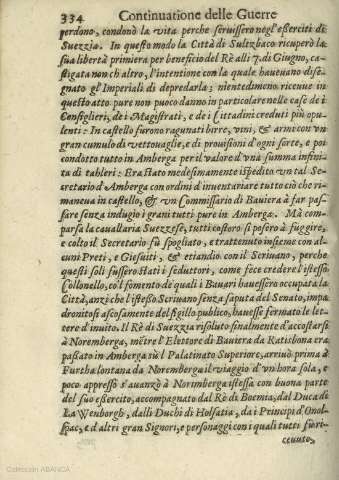 334 Continuatione delle Guerre
perdono, condonò la vita perche seruissero negl'esserciti di
Suezzia. In questo modo la Città di Sultzbaco ricuperò la
sua libertà primiera per beneficio del Rè alli 7. di Giugno, ca-
stigata non ch'altro, l'intentione con la quale haueuano dise-
gnato gl'Imperiali di depredarla; nientedimeno riceuue in
questo atto pure non puoco danno in particolare nelle case de i
Consiglieri, de i Magistrati, e de i Cittadini creduti più opu-
lenti: In castello furono ragunati birre, vini, & arme con vn
gran cumulo di vettouaglie, e di prouisioni d'ogni sorte, e poi
condotto tutto in Amberga per il valore d'vna summa infini-
ta di tahleri: Era stato medesimamente ispedito vn tal Se-
cretario d'Amberga con ordini d'inuentariare tutto ciò che ri-
maneua in castello, & vn Commissario di Bauiera à far pas-
sare senza indugio i grani tutti pure in Amberga. Mà com-
parsa la cauallaria Suezzese, tutti costoro si posero à fuggire,
e colto il Secretario fù spogliato, e trattenuto insieme con al-
cuni Preti, e Giesuiti, & etiandio con il Scriuano, perche
questi soli fussero stati i seduttori, come fece credere l'istesso
Collonello, co'l fomento de'quali i Bauari hauessero occupata la
Città, anzi che l'istesso Scriuano senza saputa del Senato, impa-
dronitosi ascosamente del sigillo publico, hauesse fermato le let-
tere d'inuito. Il Rè di Suezzia risoluto finalmente d'accostarsi
à Noremberga, mẽtre l'Elettore di Bauiera da Ratisbona era
passato in Amberga sù'l Palatinato Superiore, arriuò prima à
Furtha lontana da Noremberga il viaggio d'vn hora sola, e
poco appresso s'auanzò à Norimberga istessa con buona parte
del suo essercito, accompagnato dal Rè di Boemia, dal Duca de
La Wenborgh, dalli Duchi di Holsatia, da i Principi d'Onol-
spac, e d'altri gran Signori, e personaggi con i quali tutti fù ri-
ceuuto,
Colección ABANCA